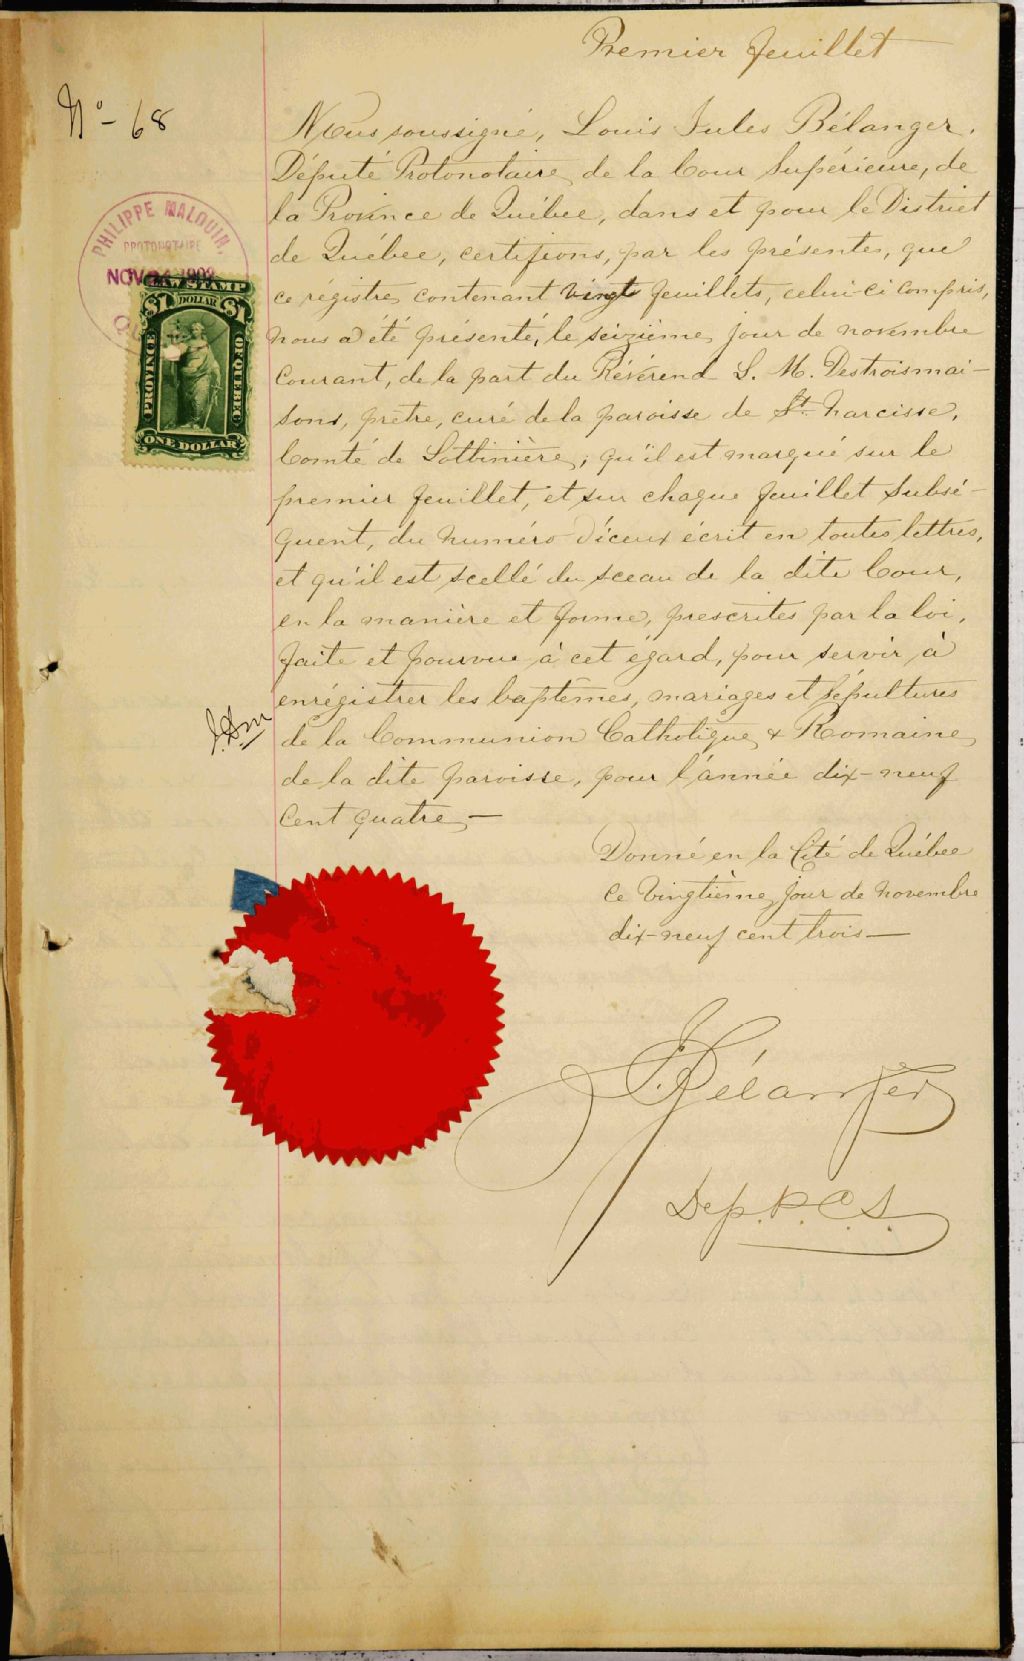 Premier feuillet
No - 68
Nous soussigné, Louis Jules Bélanger,
Député Protonotaire, de la Cour Supérieure, de
la Province de Québec, dans et pour le District
de Québec, certifions, par les présentes, que
ce régistre, contenant vingt feuillets, celui-ci compris,
nous a été présenté, le seizième, jour de novembre
courant, de la part du Révérend L. M. Destroismai-
sons, prêtre, curé de la paroisse de St. Narcisse,
Comté de Lotbinière, qu'il est marqué sur le
premier feuillet, et sur chaque feuillet subsé-
quent, du numéro d'iceux écrit en toutes lettres,
et qu'il est scellé du sceau de la dite Cour,
en la manière et forme, prescrites par la loi,
faite et pourvue à cet égard, pour servir à
enrégistrer les baptêmes, mariages et sépultures
de la Communion Catholique & Romaine,
de la dite paroisse, pour l'année dix-neuf
cent quatre, -
Donné en la Cité de Québec
ce vingtième, jour de novembre
dix-neuf cent trois -
Bélanger
Dep. P. C. S.
PHILIPPE MALOUIN,
PROTONOTAIRE
NOV
LAW STAMP
$1 DOLLAR $1
PROVINCE OF QUEBEC
ONE DOLLAR